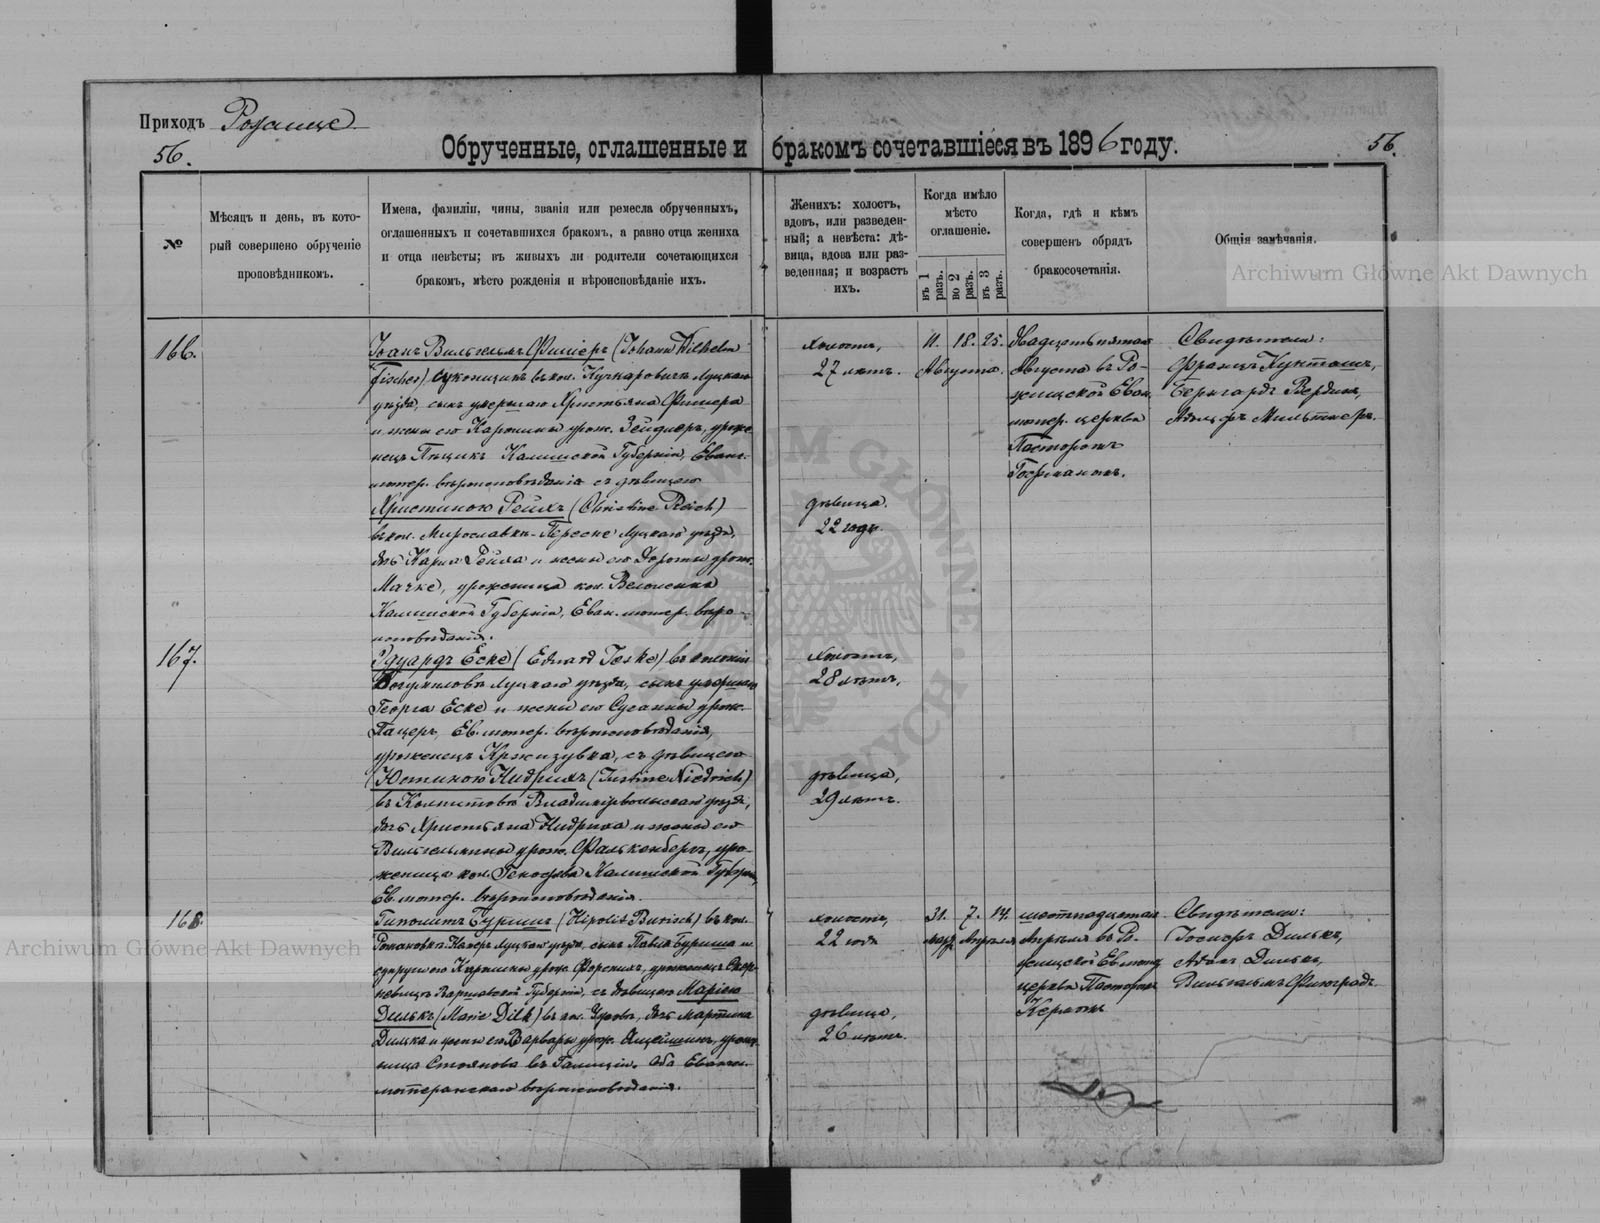 Приходъ Рожище
56.
Обрученные, оглашенные и бракомъ сочетавшіеся въ 1896 году.
56.
№
Мѣсяцъ и день, въ кото-
рый совершено обрученіе
проповѣдникомъ.
Имена, фамиліи, чины, званія или ремесла обрученныхъ,
оглашенныхъ и сочетавшихся бракомъ, а равно отца жениха
и отца невѣсты; въ живыхъ ли родители сочетающихся
бракомъ, мѣсто рожденія и вѣроисповѣданіе ихъ.
Женихъ: холостъ,
вдовъ, или разведен-
ный; а невѣста: дѣ-
вица, вдова или раз-
веденная; и возрастъ
ихъ.
Когда имѣло
мѣсто
оглашеніе.
въ 1 разъ.
во 2 разъ.
въ 3 разъ.
Когда, гдѣ и кѣмъ
совершенъ обрядъ
бракосочетанія.
Общія замѣчанія.
Archiwum Główne Akt Dawnych
166.
Іоанъ Вильгельмъ Фишеръ (Johann Wilhelm
Fischer) суконщикъ въ кол. Кучкаровичъ Луцкаго
уѣзда, сынъ умершаго Христьяна Фишера
и жены его Каролины урож. Зейдлеръ, уроже-
нецъ Калишской Губерніи, Еванг.
лютер. вѣроисповѣданія съ дѣвицею
Христиною Рейхъ (Christine Reich)
въ кол. Мирославка Луцкаго уѣзда,
дочь Карла Рейха и жены его Дороты урож.
уроженица кол.
Калишской Губерніи, Еван. лютер. вѣро-
исповѣданія.
холостъ,
27 лѣтъ.
дѣвица.
22 года.
11. 18. 25.
Августа.
двадцать пятаго
Августа въ Ро-
жищской Еван.
лютер. церкви
Пасторомъ
Гофманомъ.
Свидѣтели:
Францъ
Бернгардъ
Адольфъ
167.
Эдуардъ Еске (Eduard Jeske) въ колоніи
Богумиловкѣ Луцкаго уѣзда, сынъ умершаго
Георга Еске и жены его Сусанны урож.
Пацеръ, Ев. лютер. вѣроисповѣданія,
уроженецъ съ дѣвицею
Юстиною Нидрихъ (Justine Niedrich)
въ Владимірволынскаго уѣзда,
дочь Христьяна Нидриха и жены его
Вильгельмины урож. Фалькенбергъ, уро-
женица кол. Калишской Губерніи,
Ев. лютер. вѣроисповѣданія.
холостъ,
28 лѣтъ.
дѣвица,
29 лѣтъ.
168.
Гиполитъ Буришъ (Hipolit Burisch) въ кол.
Романовка Луцкаго уѣзда, сынъ Павла Буриша и
супруги его Каролины урож. уроженецъ Скер-
невицъ Варшавской Губерніи, съ дѣвицею Маріею
Дилькъ (Marie Dilk) въ кол. дочь Мартина
Дилька и жены его Варвары урож. уроже-
ница Стоянова въ Галиціи. Оба Евангел.
лютеранскаго вѣроисповѣданія.
холостъ,
22 года
дѣвица,
26 лѣтъ.
31. 7. 14.
Марта Апрѣля
шестнадцатаго
Апрѣля въ Ро-
жищской Ев. лют.
церкви Пасторомъ
Кермъ
Свидѣтели:
Іосифъ Дилькъ,
Адамъ Дилькъ,
Вильгельмъ
Archiwum Główne Akt Dawnych